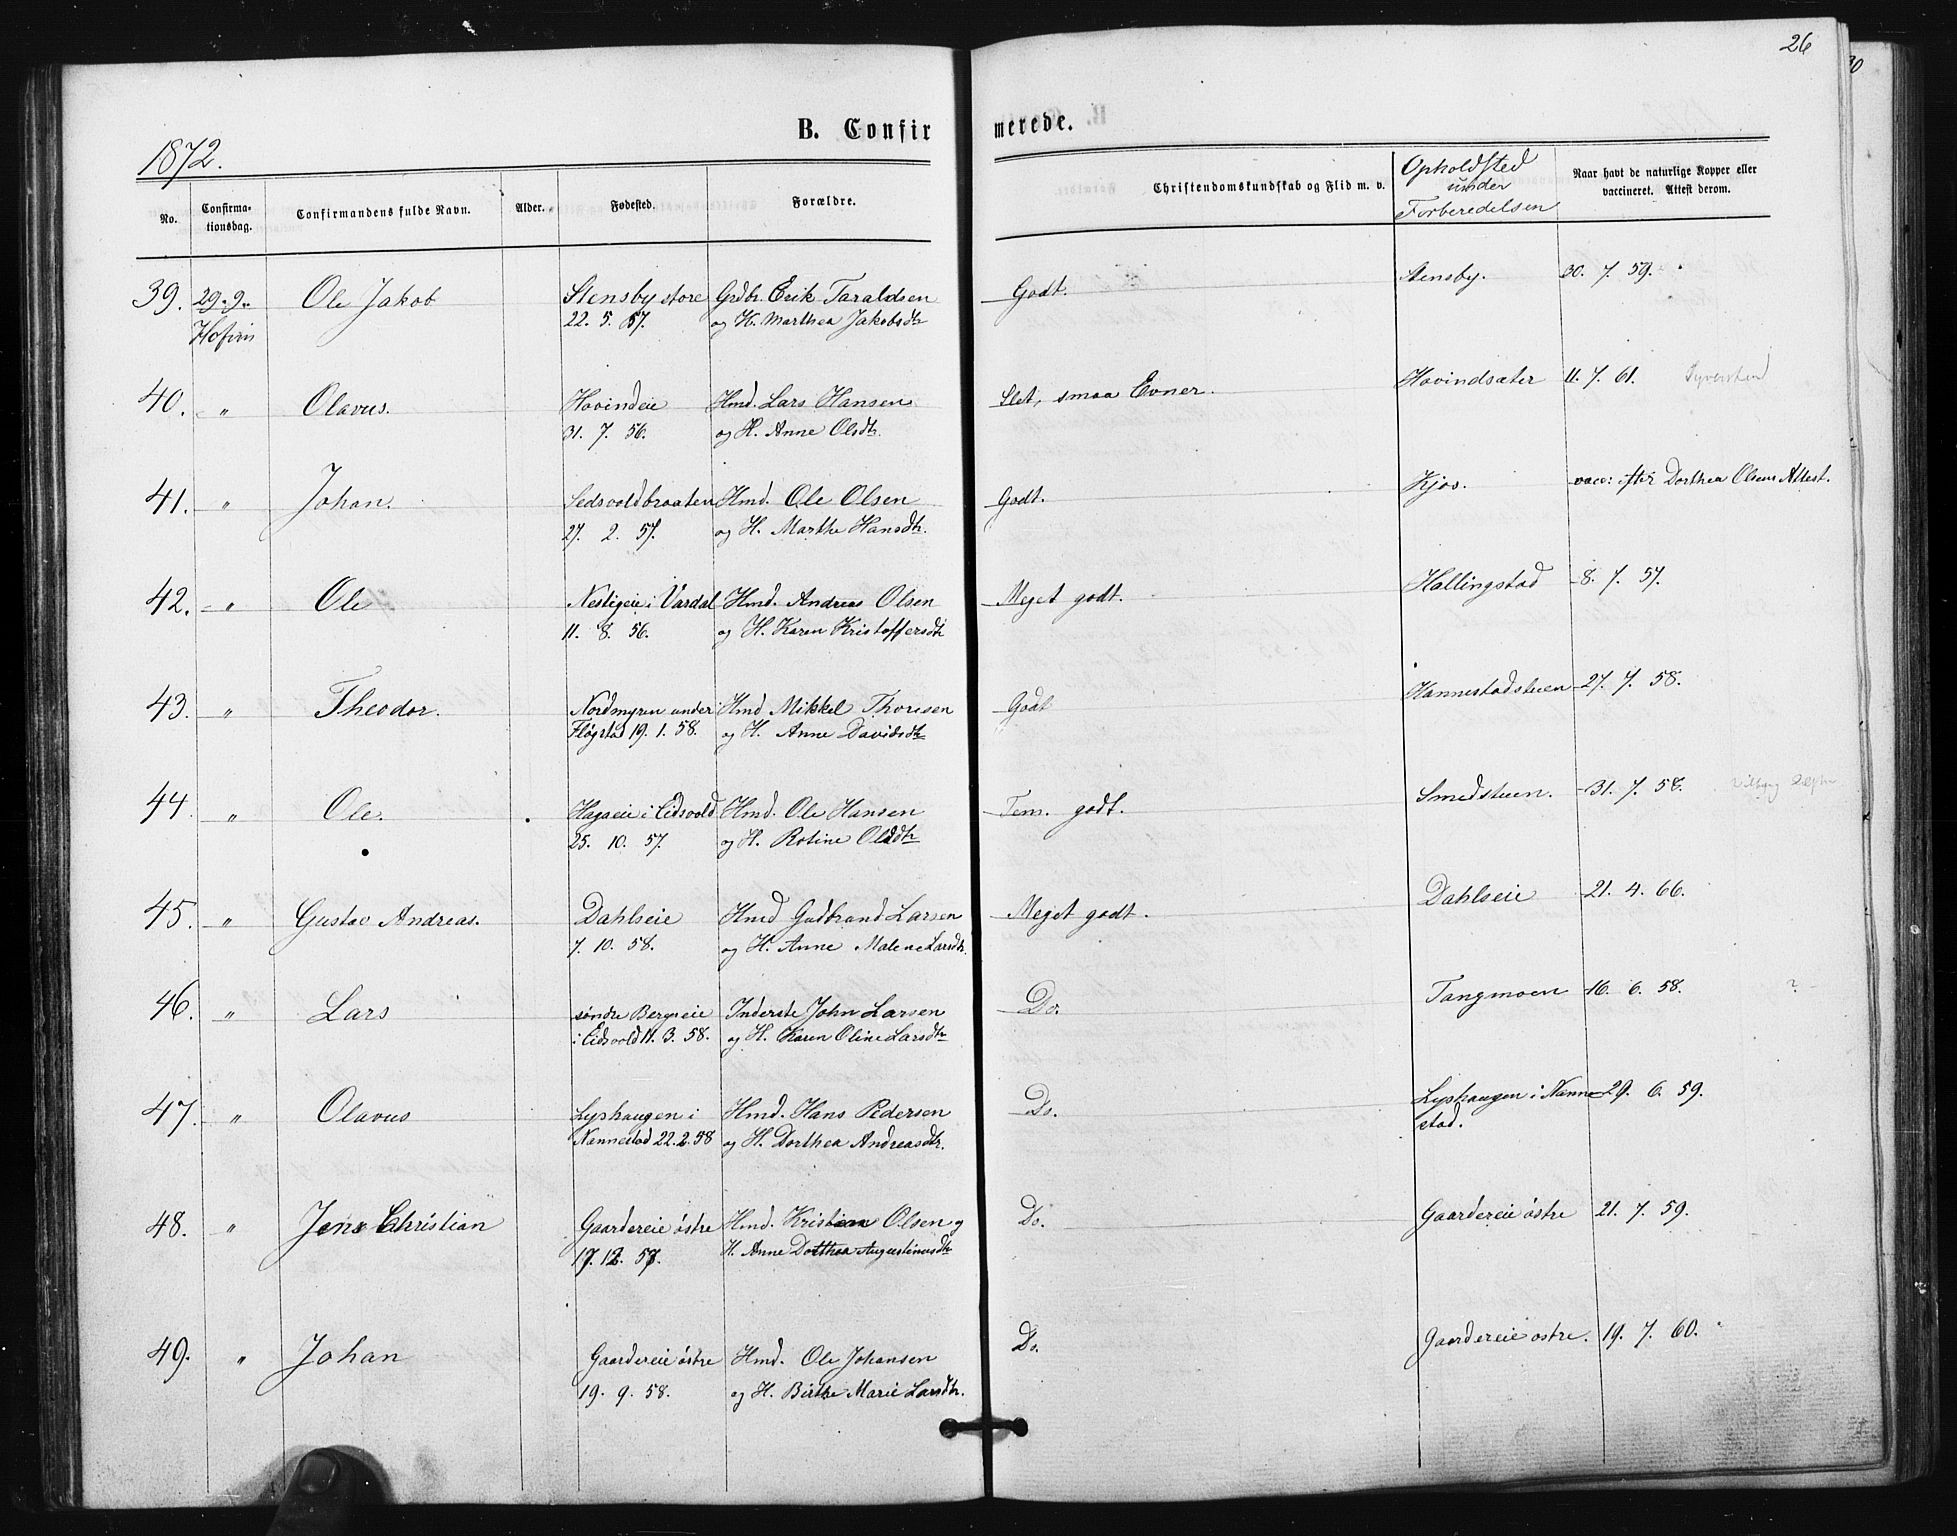 26
B. Confirmerede.
1872.
No. Confirmationsdag. Confirmandens fulde Navn. Alder. Fødested. Forældre. Christendomskundskab og Flid m. v. Opholdsted under Forberedelsen Naar havt de naturlige Kopper eller vaccineret. Attest derom.
39. 29.9. Ole Jakob Stensby store Grdbr. Erik Taraldsen Godt. Stensby. 30. 7. 59.
Hofvin 22. 5. 57. og H. Marthea Jakobsdtr
40. " Olavus. Hovindeie Hmd. Lars Hansen Slet, smaa Evner. Hovindsæter 11. 7. 61.
31. 7. 56. og H. Anne Olsdtr.
41. " Johan. Sedsvoldbraaten Hmd. Ole Olsen Godt. Kjos. vacc: efter Dorthea Olsens Attest.
27. 2. 57. og H. Marthe Hansdtr.
42. " Ole Nesligeie i Vardal Hmd. Andreas Olsen Meget godt. Hallingstad 8. 7. 57.
11. 8. 56. og H. Karen Kristoffersdtr
43. " Theodor. Nordmyren under Hmd Mikkel Thoresen Godt Hannestadstuen 27. 7. 58.
Fløgstad 19. 1. 58. og H. Anne Davidsdtr
44. " Ole. Hagaeie i Eidsvold Hmd. Ole Hansen Tem. godt. Smedstuen. 31. 7. 58.
25. 10. 57. og H. Rotine Olsdtr
45. " Gustav Andreas. Dahlseie Hmd Gudbrand Larsen Meget godt. Dahlseie 21. 4. 66.
7. 10. 58. og H. Anne Malene Larsdtr.
46. " Lars søndre Bergseie Inderste John Larsen Do. Tangmoen 16. 6. 58. ?
i Eidsvold 11. 3. 58. og H. Karen Oline Larsdtr
47. " Olavus Lyshaugen i Hmd. Hans Pedersen Do. Lyshaugen i Nannestad. 29. 6. 59.
Nannestad 22. 2. 58 og H. Dorthea Andreasdtr.
48. " Jens Christian Gaardereie østre Hmd. Kristian Olsen og Do. Gaardereie østre 21. 7. 59.
17. 12. 57. H. Anne Dorthea Augustinusdtr
49. " Johan Gaardereie østre Hmd. Ole Johansen Do. Gaardereie østre. 19. 7. 60.
19. 9. 58. og H. Birthe Marie Larsdtr.